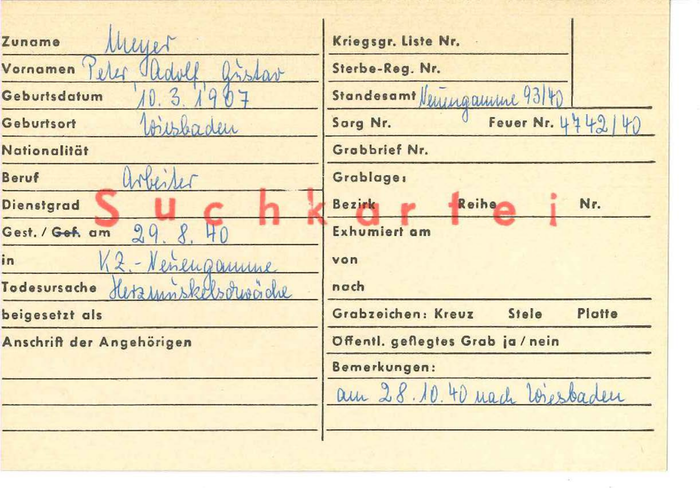 Zuname Meyer
Vornamen Peter Adolf Gustav
Geburtsdatum 10.3.1907
Geburtsort Wiesbaden
Nationalität
Beruf Arbeiter
Dienstgrad
Gest. / Gef. am 29.8.40
in KZ.-Neuengamme
Todesursache Herzmuskelschwäche
beigesetzt als
Anschrift der Angehörigen
Suchkartei
Kriegsgr. Liste Nr.
Sterbe-Reg. Nr.
Standesamt Neuengamme 93/40
Sarg Nr. Feuer Nr. 4742/40
Grabbrief Nr.
Grablage:
Bezirk Reihe Nr.
Exhumiert am
von
nach
Grabzeichen: Kreuz Stele Platte
Öffentl. gepflegtes Grab ja / nein
Bemerkungen:
am 28.10.40 nach Wiesbaden